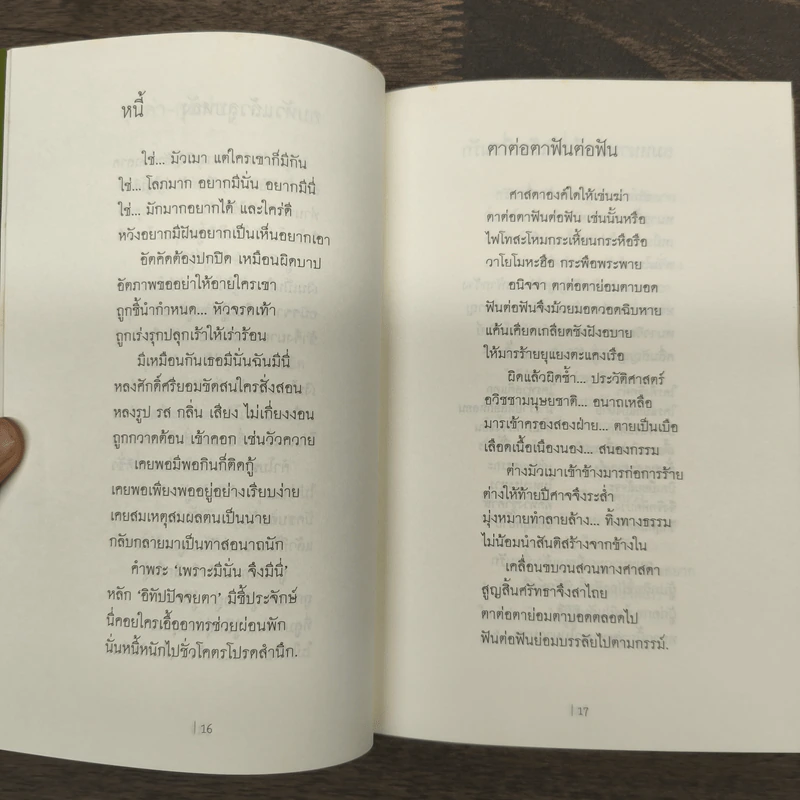 หนี้
ใช่... มัวเมา แต่ใครเขาก็มีกัน
ใช่... โลภมาก อยากมีนั่น อยากมีนี่
ใช่... มักมากอยากได้ และใคร่ดี
หวังอยากมีฝันอยากเป็นเห็นอยากเอา
อัตคัดต้องปกปิด เหมือนผิดบาป
อัตภาพขออย่าให้อายใครเขา
ถูกชี้นำกำหนด... หัวจรดเท้า
ถูกเร่งรุกปลุกเร้าให้เร่าร้อน
มีเหมือนกันเธอมีนั่นฉันมีนี่
หลงศักดิ์ศรียอมขัดสนใครสั่งสอน
หลงรูป รส กลิ่น เสียง ไม่เกี่ยงงอน
ถูกกวาดต้อน เข้าคอก เช่นวัวควาย
เคยพอมีพอกินก็ติดกู้
เคยพอเพียงพออยู่อย่างเรียบง่าย
เคยสมเหตุสมผลตนเป็นนาย
กลับกลายมาเป็นทาสอนาถนัก
คำพระ ‘เพราะมีนั่น จึงมีนี่’
หลัก ‘อิทัปปัจจยตา’ มีชี้ประจักษ์
นี่คอยใครเอื้ออาทรช่วยผ่อนพัก
นั่นหนี้หนักไปชั่วโคตรโปรดสำนึก.
| 16
ตาต่อตาฟันต่อฟัน
ศาสดาองค์ใดให้เข่นฆ่า
ตาต่อตาฟันต่อฟัน เช่นนั้นหรือ
ไฟโทสะโหมกระเหี้ยนกระหือรือ
วาโยโมหะฮือ กระพือพระพาย
อนิจจา ตาต่อตาย่อมตาบอด
ฟันต่อฟันจึงม้วยมอดวอดฉิบหาย
แค้นเคียดเกลียดชังฝังอบาย
ให้มารร้ายยุแยงตะแคงเรือ
ผิดแล้วผิดซ้ำ... ประวัติศาสตร์
อวิชชามนุษยชาติ... อนาถเหลือ
มารเข้าครองสองฝ่าย... ตายเป็นเบือ
เลือดเนื้อเนื่องนอง... สนองกรรม
ต่างมัวเมาเข้าข้างมารก่อการร้าย
ต่างให้ท้ายปีศาจจึงระส่ำ
มุ่งหมายทำลายล้าง... ทิ้งทางธรรม
ไม่น้อมนำสันติสร้างจากข้างใน
เคลื่อนขบวนสวนทางศาสดา
สูญสิ้นศรัทธาจึงสาไถย
ตาต่อตาย่อมตาบอดตลอดไป
ฟันต่อฟันย่อมบรรลัยไปตามกรรม์.
| 17